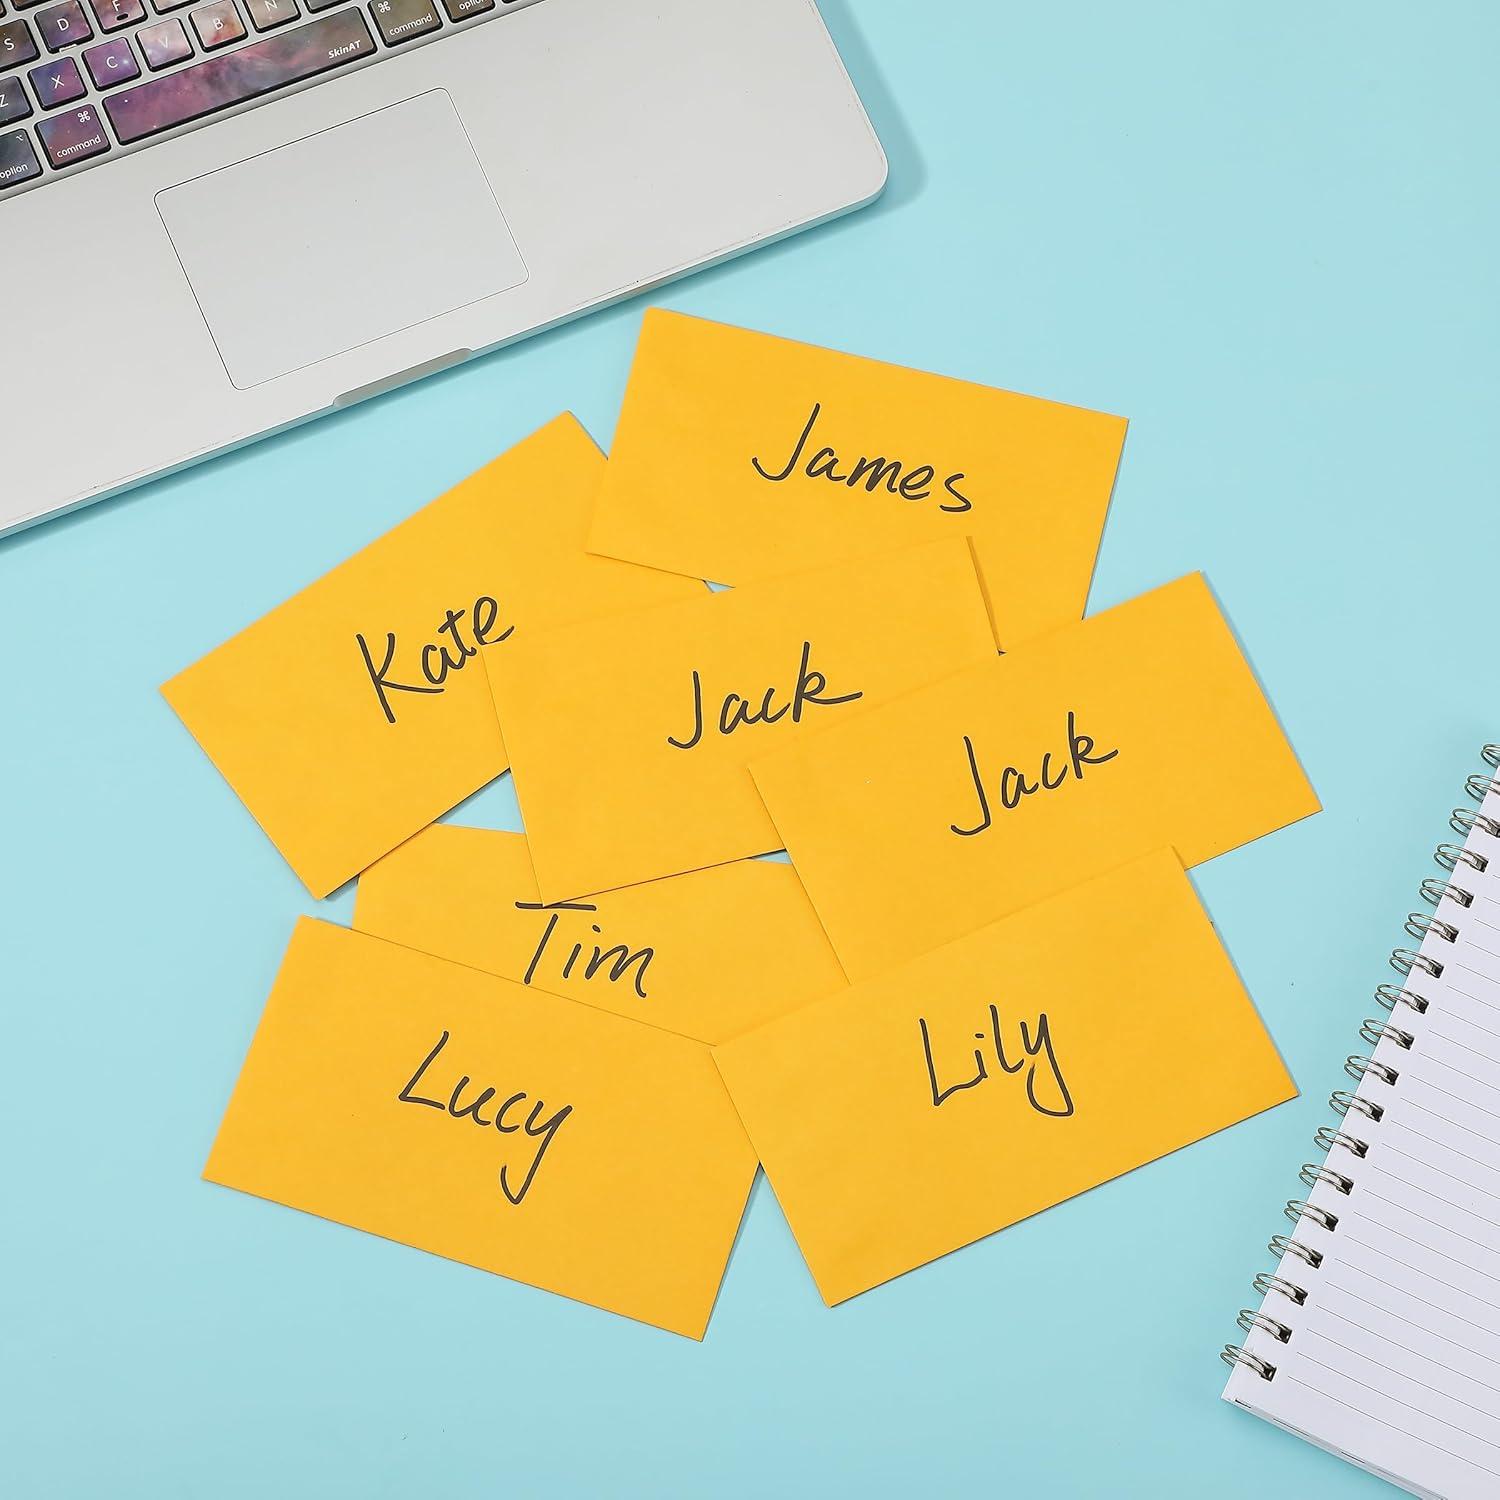 S D F
Z X C V B N
⌘
command
option
SkinAT
⌘
command
⌥
option
James
Kate
Jack
Jack
Tim
Lily
Lucy